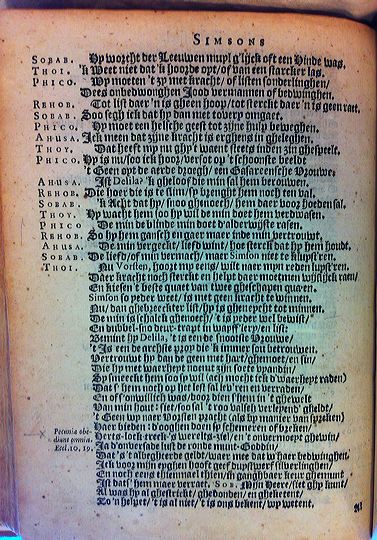 SIMSONS
SOBAB. Hy worcht der Leeuwen muyl g'lijck oft een Hinde was.
THOI. 'k Weet niet dat 'k hoorde opt/ of van een starcker las.
PHICO. Wy moeten 't zy met kracht/ of listen sonderlinghen/
Dees onbedwonghen Jood vermannen of bedwinghen.
REHOB. Tot list daer 'n is gheen hoop/ tot sterckt daer 'n is geen raet.
SOBAB. Soo segh ick dat hy dan met towery omgaet.
PHICO. Hy moet een helsche geest tot zijne hulp beweghen.
AHUSA. Ick neen dat zijne kracht is erghens in gheleghen.
THOY. Dat heeft my nu ghy 't waent steets inden zin ghespeelt.
PHICO. Hy is nu/ soo ick hoor/ versot op 't schoonste beeldt
't Geen opt de aerde droegh/ een Gasareensche Vrouwe:
AHUSA. Ist Delila? 'k gheloof die min sal hem berouwen.
REHOB. Die hoer die is te slim/ sy brenght hem noch ten val.
SOBAB. 'k Acht dat hy/ snoo ghenoech/ hem daer voor hoeden sal.
THOY. Hy wacht hem soo hy wil de min doet hem verdwasen.
PHICO De min de blinde min doet d'alderwijste rasen.
REHOB. So is hy hem gansch en gaer maer inde min vertrouwt,
AHUSA. De min vergeckt/ liefd wint/ hoe sterck dat hy hem houdt,
SOBAB. De liefd/ of min vermach/ maer Simson niet te kluyst'ren.
THOI. Nu Vorsten, hoort my eens/ wilt naer mijn reden luyst'ren.
Daer kracht noch sterckt en helpt daer moetmen wijslijck raen/
En kiesen 't beste quaet van twee gheschapen quaen.
Simson so yeder weet/ is met geen kracht te winnen.
Nu/ dan ghebreeckter list/ hy is gheneycht tot minnen.
De min is schalck ghenoech/ 't is yeder wel bewist/
En dubbel-snode trapt in wapff'lery/ en list:
Bemint hy Delila, 't is een de snootste Vrouwe/
't Is een de archste prop die 'k immer sou betrouwen.
Vertrouwt hy dan de geen met hart/ ghemoet/ en sin/
Die hy met waerheyt noemt zijn soete vyandin/
Sy smeeckt hem soo sy wil (ach mocht ick d'waerheyt raden)
Dat s' hem noch op het lest sal lev'ren en verraden/
En of s' onwillich was/ door dien s' hem in 't ghewelt
Van min hout: siet/ soo sal 't roo valsch verlepend' gheldt/
('t Geen wy naer Vorsten pracht (als by manier van spreken)
Haer bieden: d'ooghen doen schemeren of breken/
Pecunia obe-
diunt omnia.
Eccl. 10, 19.
Herts-lock-treck/ 's werelts-ziel/ en t' onvermoept ghewin/
Ja d'onversade lust de ronde munt-Goddin/
Dat 's 't albegheerde geldt/ waer mee dat w' haer bedwinghen.
Ick voor mijn eyghen hooft geef duysentwerf silverlinghen/
En noch eens thienmael thien/ in ganghbaer keur ghemunt
Ist dat s' hem maer verraet. SOB. Mijn Heere/ siet ghy kunt/
Al was hy al ghestrickt/ ghebonden/ en gheketent
To 'n helpet/ 't is al niet/ 't is ons bekent/ wy wetent.